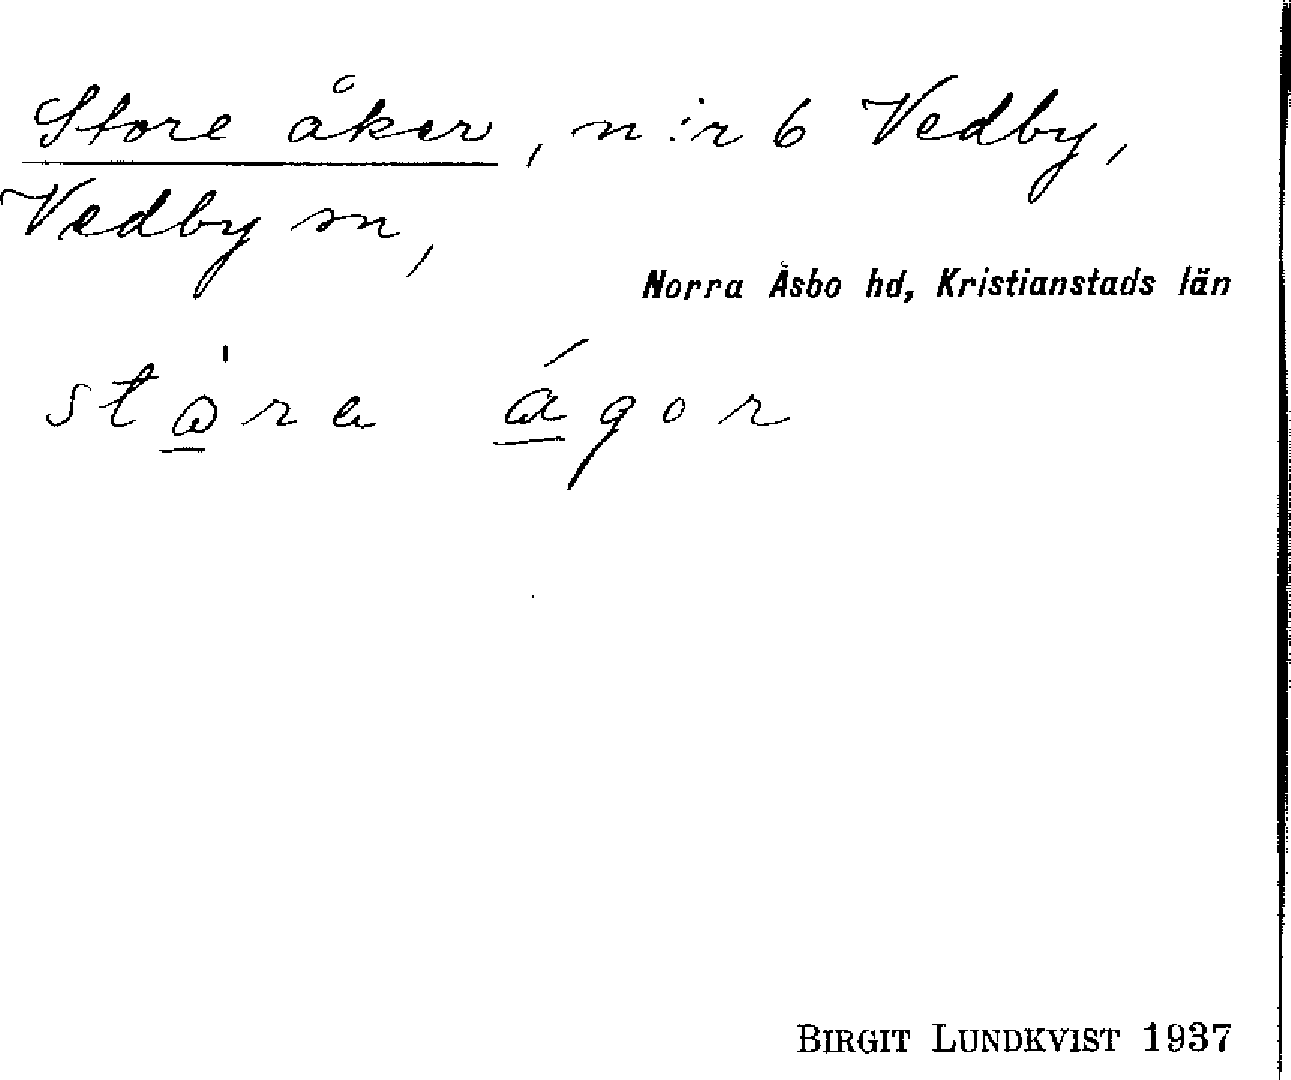 Store åker, n:r 6 Vedby,
Vedby sn,
Norra Åsbo hd, Kristianstads län
stɷ̠̀ra á̠gor
BIRGIT LUNDKVIST 1937